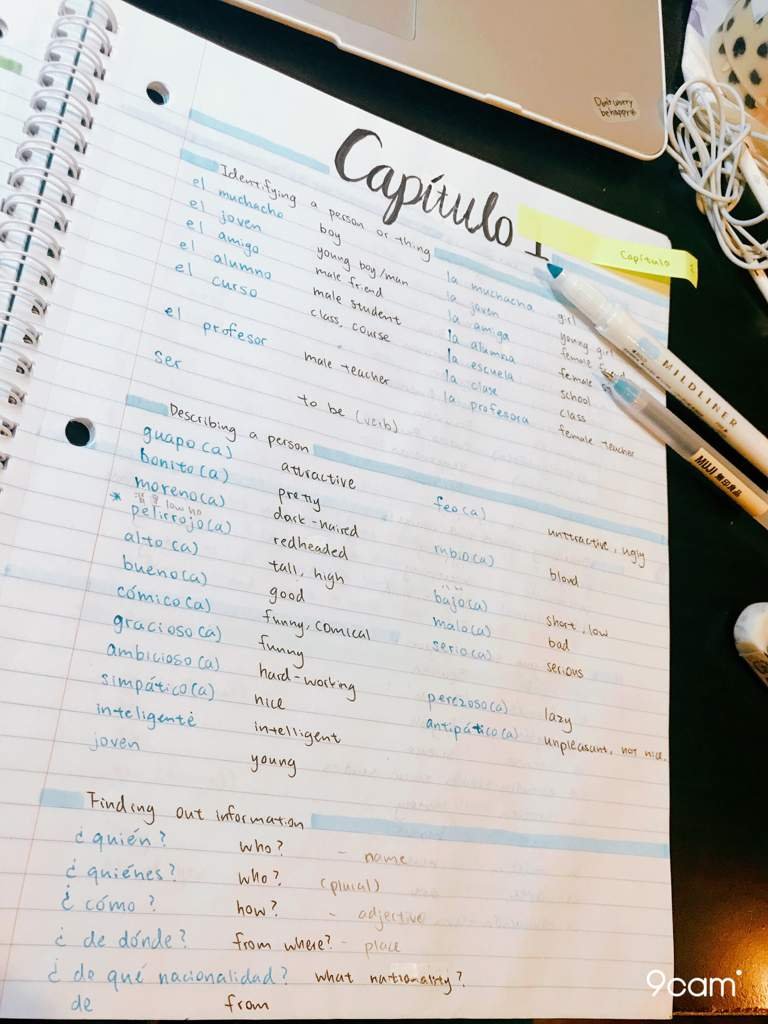 Don't worry
be happy
Capítulo 1
Capítulo
Identifying a person or thing
el muchacho boy la muchacha girl
el joven young boy/man la joven young girl
el amigo male friend la amiga female friend
el alumno male student la alumna female
el curso class, course la escuela school
la clase class
el profesor male teacher la profesora female teacher
ser to be (verb)
Describing a person
guapo(a) attractive feo(a) unttractive, ugly
bonito(a) pretty
moreno(a) dark-haired rubio(a) blond
* pelirrojo(a) redheaded
alto(a) tall, high bajo(a) short, low
bueno(a) good malo(a) bad
cómico(a) funny, comical serio(a) serious
gracioso(a) funny
ambicioso(a) hard-working perezoso(a) lazy
simpático(a) nice antipático(a) unpleasant, not nice.
inteligente intelligent
joven young
Finding out information
¿quién? who? - name
¿quiénes? who? (plural)
¿cómo? how? - adjective
¿de dónde? from where? - place
¿de qué nacionalidad? what nationality?
de from
MILDLINER
MUJI 無印良品
9cam